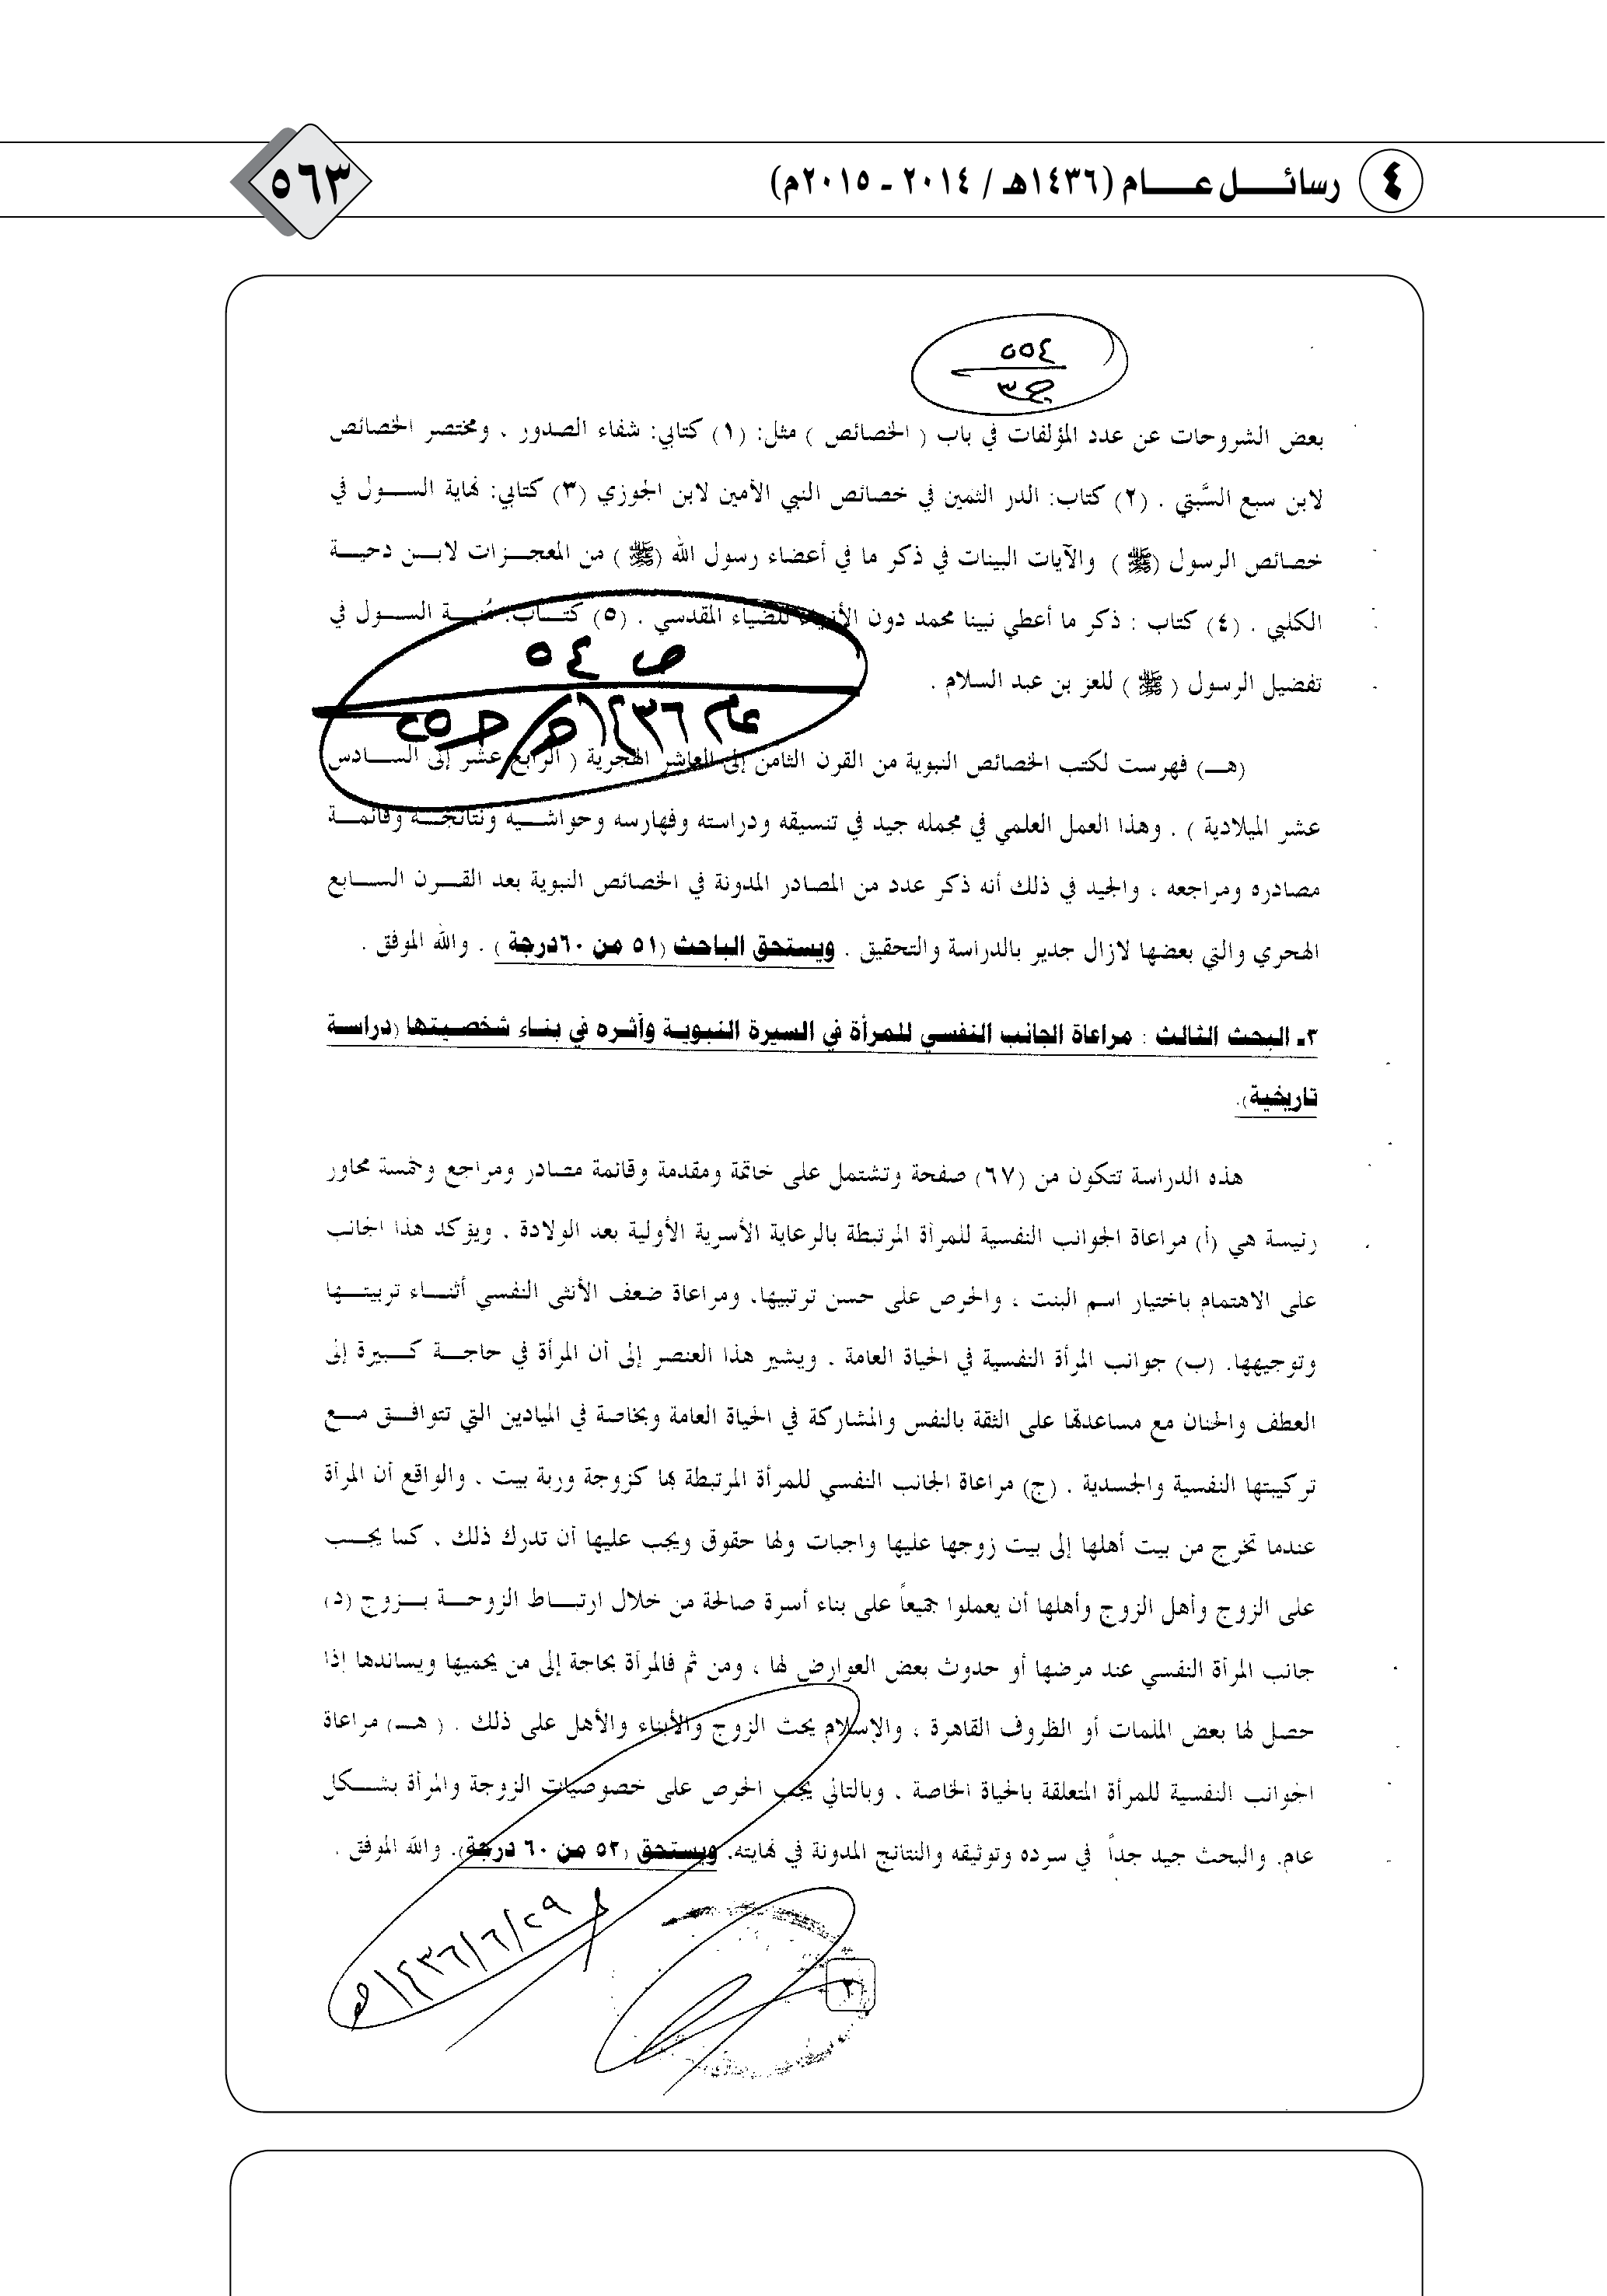 ٤ رسائل عام (١٤٣٦هـ / ٢٠١٤ ـ ٢٠١٥م) ٥٦٣
٥٥٤
ج٣
بعض الشروحات عن عدد المؤلفات في باب ( الخصائص ) مثل: (١) كتابي: شفاء الصدور ، ومختصر الخصائص
لابن سبع السَّبتي . (٢) كتاب: الدر الثمين في خصائص النبي الأمين لابن الجوزي (٣) كتابي: نهاية السول في
خصائص الرسول (ﷺ ) والآيات البينات في ذكر ما في أعضاء رسول الله (ﷺ ) من المعجزات لابن دحية
الكلبي . (٤) كتاب : ذكر ما أعطي نبينا محمد دون الأنبياء للضياء المقدسي . (٥) كتاب: مُنية السول في
تفضيل الرسول ( ﷺ ) للعز بن عبد السلام .
ص ٥٤
عام ١٤٣٦هـ
(هـ) فهرست لكتب الخصائص النبوية من القرن الثامن إلى العاشر الهجرية ( الرابع عشر إلى السادس
عشر الميلادية ) . وهذا العمل العلمي في مجمله جيد في تنسيقه ودراسته وفهارسه وحواشيه ونتائجه وقائمة
مصادره ومراجعه ، والجيد في ذلك أنه ذكر عدد من المصادر المدونة في الخصائص النبوية بعد القرن السابع
الهجري والتي بعضها لازال جدير بالدراسة والتحقيق . ويستحق الباحث (٥١ من ٦٠درجة ) . والله الموفق .
٣ـ البحث الثالث : مراعاة الجانب النفسي للمرأة في السيرة النبوية وأثره في بناء شخصيتها (دراسة
تاريخية).
هذه الدراسة تتكون من (٦٧) صفحة وتشتمل على خاتمة ومقدمة وقائمة مصادر ومراجع وخمسة محاور
رئيسة هي (أ) مراعاة الجوانب النفسية للمرأة المرتبطة بالرعاية الأسرية الأولية بعد الولادة . ويؤكد هذا الجانب
على الاهتمام باختيار اسم البنت ، والحرص على حسن ترتبيها، ومراعاة ضعف الأنثى النفسي أثناء تربيتها
وتوجيهها. (ب) جوانب المرأة النفسية في الحياة العامة . ويشير هذا العنصر إلى أن المرأة في حاجة كبيرة إلى
العطف والحنان مع مساعدتها على الثقة بالنفس والمشاركة في الحياة العامة وبخاصة في الميادين التي تتوافق مع
تركيبتها النفسية والجسدية . (ج) مراعاة الجانب النفسي للمرأة المرتبطة بها كزوجة وربة بيت . والواقع أن المرأة
عندما تخرج من بيت أهلها إلى بيت زوجها عليها واجبات ولها حقوق ويجب عليها أن تدرك ذلك . كما يجب
على الزوج وأهل الزوج وأهلها أن يعملوا جميعاً على بناء أسرة صالحة من خلال ارتباط الزوجة بزوج (د)
جانب المرأة النفسي عند مرضها أو حدوث بعض العوارض لها ، ومن ثم فالمرأة بحاجة إلى من يحميها ويساندها إذا
حصل لها بعض الملمات أو الظروف القاهرة ، والإسلام يحث الزوج والأبناء والأهل على ذلك . ( هـ) مراعاة
الجوانب النفسية للمرأة المتعلقة بالحياة الخاصة . وبالتالي يجب الحرص على خصوصيات الزوجة والمرأة بشكل
عام. والبحث جيد جداً في سرده وتوثيقه والنتائج المدونة في نهايته. ويستحق (٥٢ من ٦٠ درجة). والله الموفق .
١٤٣٦/٦/٢٩هـ
٢